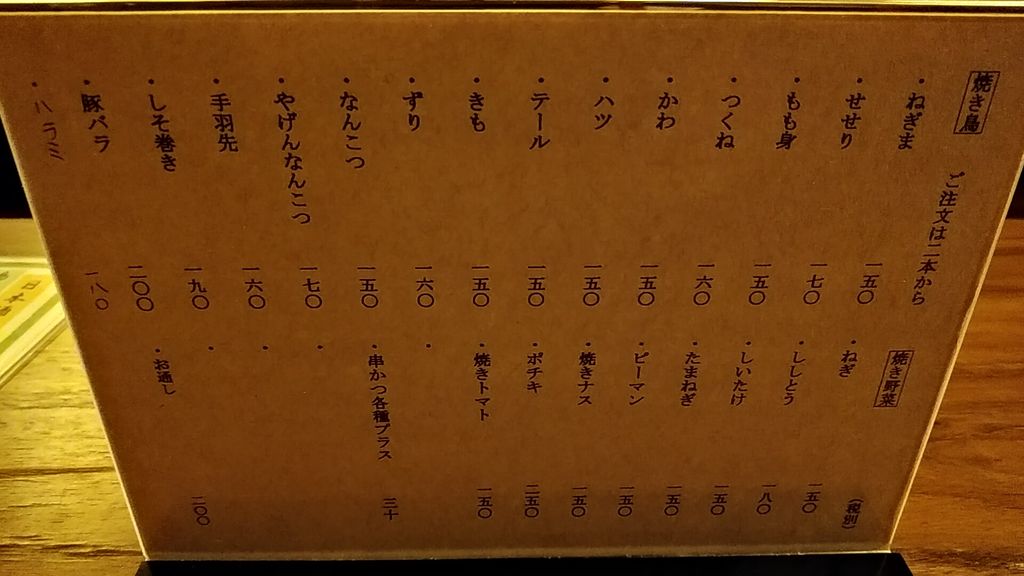 焼き鳥
ご注文は二本から
・ねぎま 一五〇
・せせり 一七〇
・もも身 一五〇
・つくね 一六〇
・かわ 一五〇
・ハツ 一五〇
・テール 一五〇
・きも 一五〇
・ずり 一六〇
・なんこつ 一五〇
・やげんなんこつ 一七〇
・手羽先 一六〇
・しそ巻き 一九〇
・豚バラ 二〇〇
・ハラミ 一八〇
焼き野菜
(税別)
・ねぎ 一五〇
・ししとう 一八〇
・しいたけ 一五〇
・たまねぎ 一五〇
・ピーマン 一五〇
・焼きナス 一五〇
・ポチキ 二五〇
・焼きトマト 一五〇
・
・串かつ各種プラス 三十
・
・
・
・お通し 二〇〇